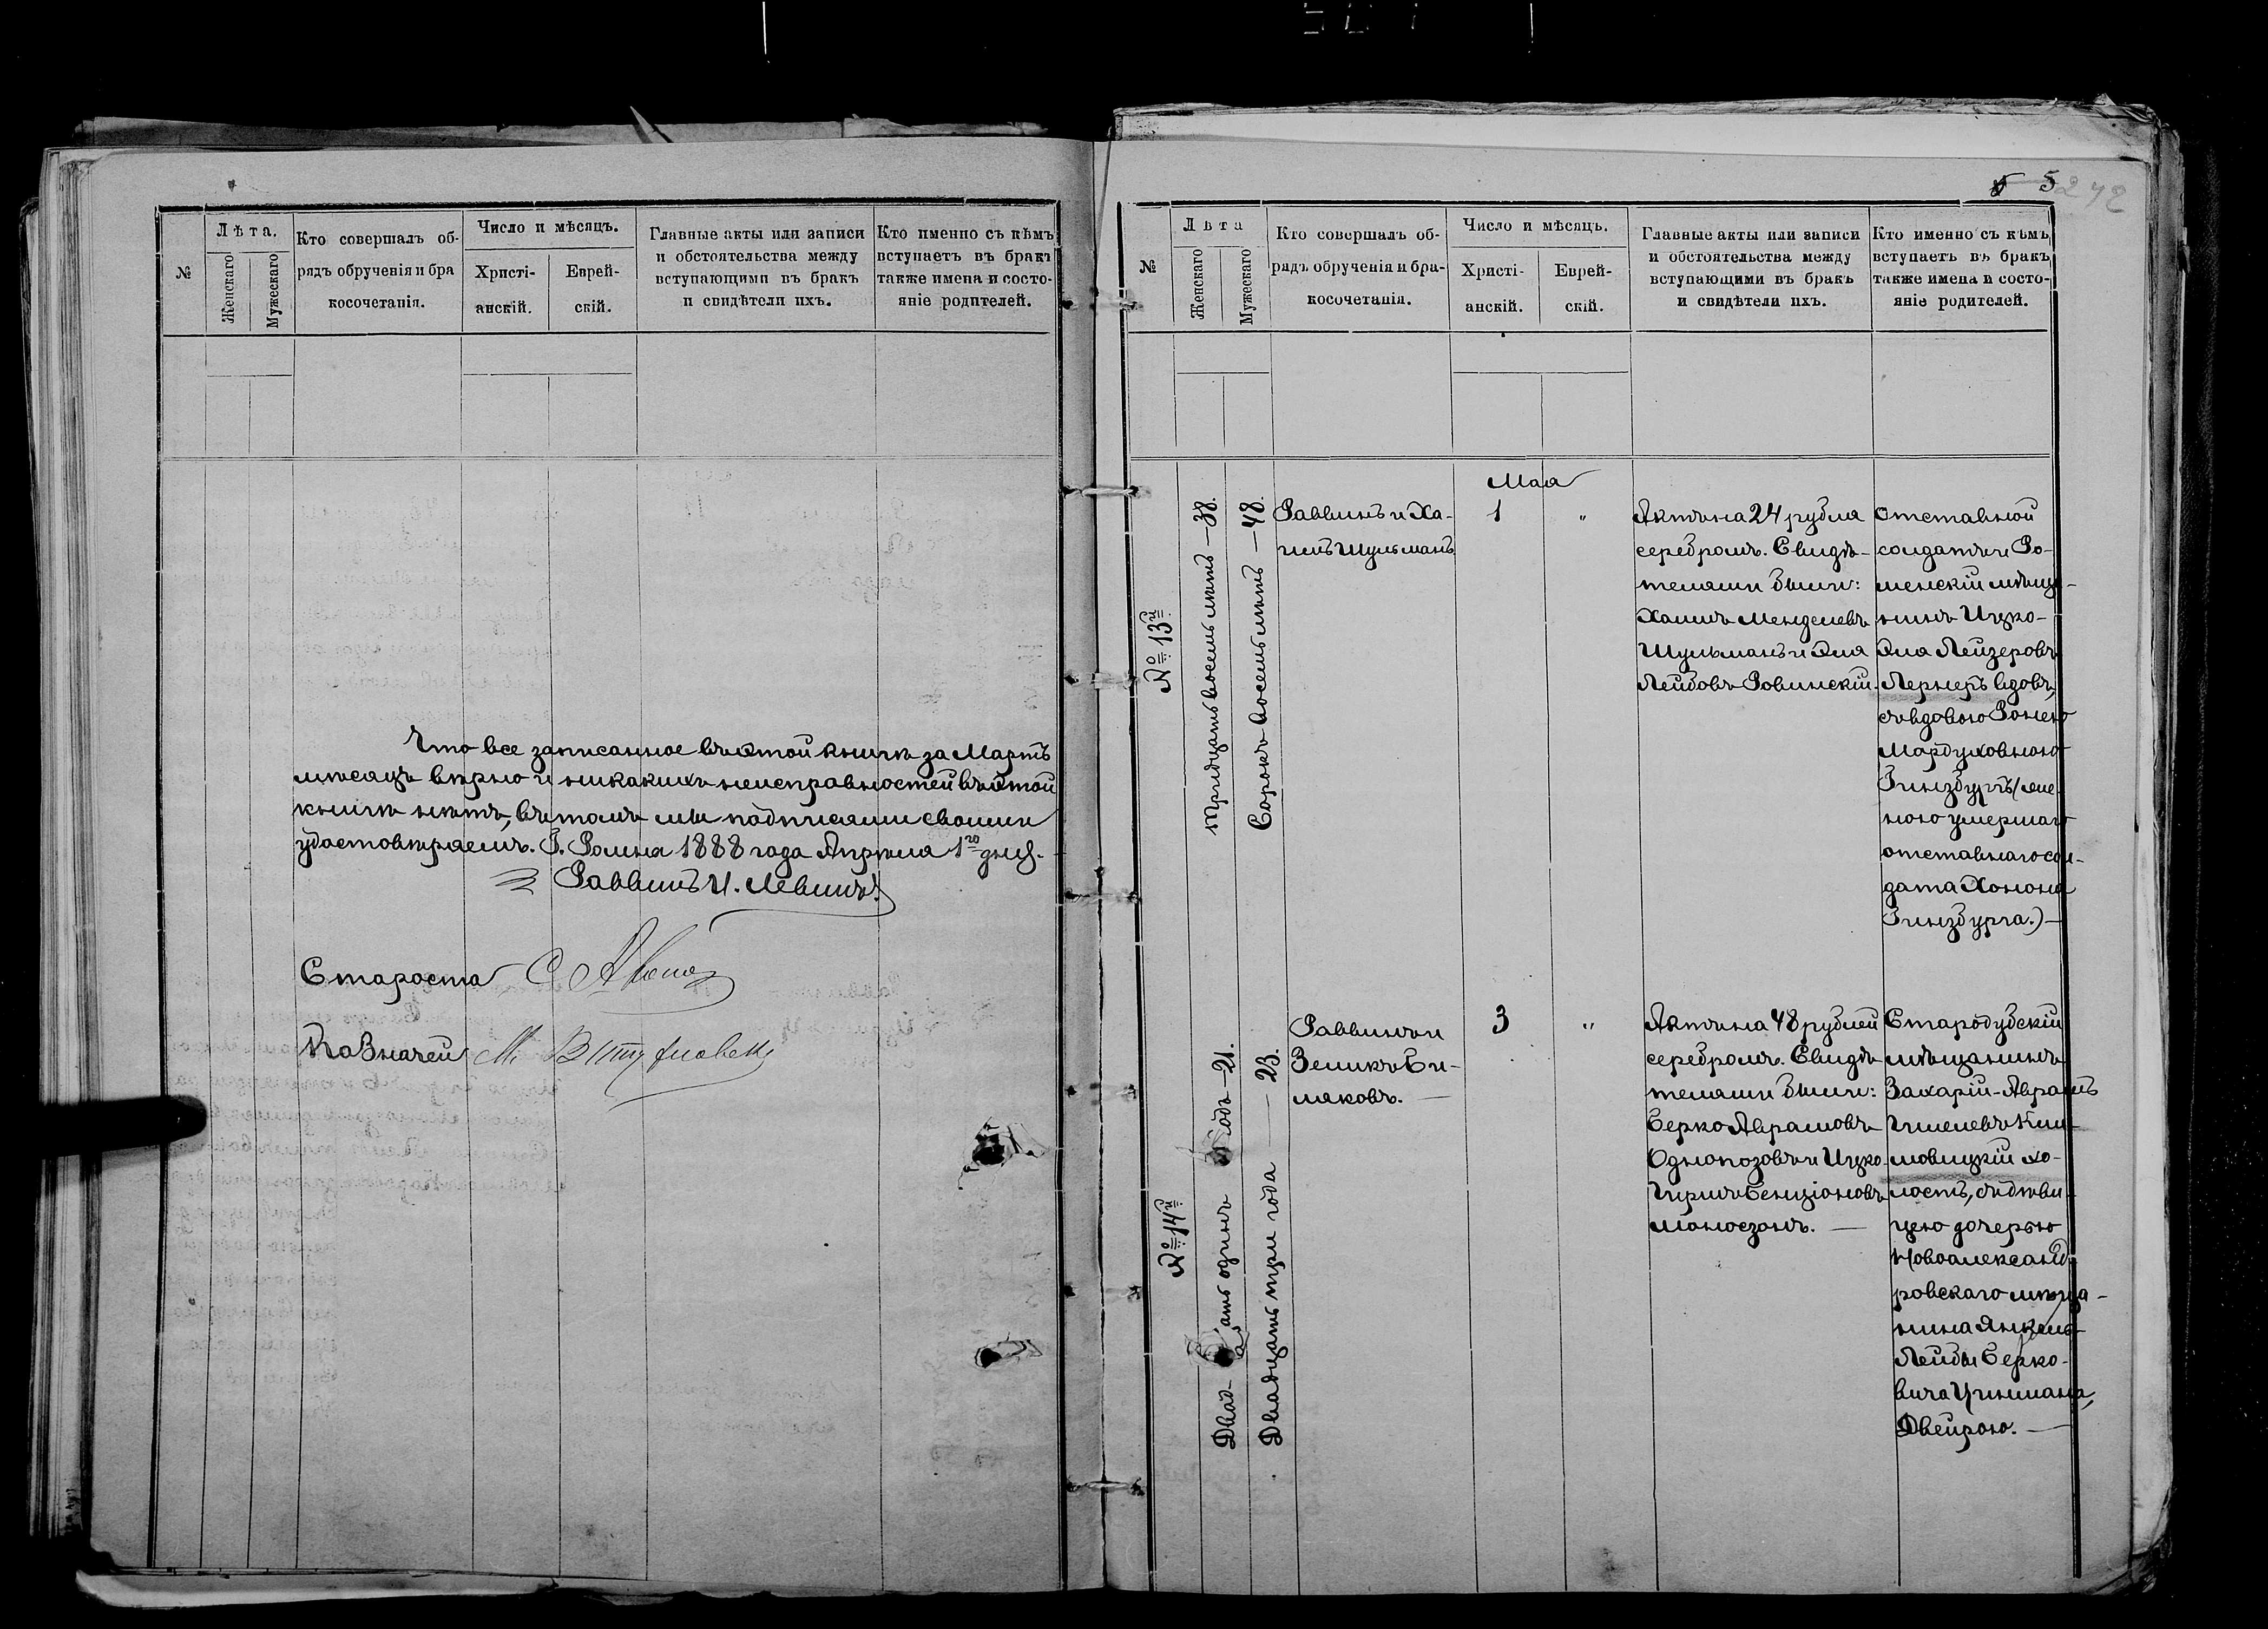 №
Лѣта.
Женскаго
Мужескаго
Кто совершалъ об-
рядъ обрученія и бра
косочетанія.
Число и мѣсяцъ.
Христі-
анскій.
Еврей-
скій.
Главные акты или записи
и обстоятельства между
вступающими въ бракъ
и свидѣтели ихъ.
Кто именно съ кѣмъ
вступаетъ въ бракъ
также имена и состо-
яніе родителей.
Что все записанное въ этой книгѣ за Мартъ
мѣсяцъ вѣрно и никакихъ неисправностей въ этой
книгѣ нѣтъ, въ томъ мы подписями своими
удостовѣряемъ. Г. Ромны 1888 года Апрѣля 1го дня.
Раввинъ И. Левинъ
Староста С.
Казначей М.
5 242
№
Лѣта
Женскаго
Мужескаго
Кто совершалъ об-
рядъ обрученія и бра-
косочетанія.
Число и мѣсяцъ.
Христі-
анскій.
Еврей-
скій.
Главные акты или записи
и обстоятельства между
вступающими въ бракъ
и свидѣтели ихъ.
Кто именно съ кѣмъ
вступаетъ въ бракъ
также имена и состо-
яніе родителей.
Мая
№ 13й
Тридцать восемь лѣтъ — 38.
Сорокъ восемь лѣтъ — 48.
Раввинъ и Ха-
имъ Шульманъ
1
"
Актъ на 24 рубля
серебромъ. Свидѣ-
телями были:
Хаимъ Менделевъ
Шульманъ и Эля
Лейбовъ Ровинскій.
Отставной
солдатъ и Ро-
менскій мѣща-
нинъ Ицко-
Эля Лейзеровъ
Лернеръ вдовъ,
съ вдовою Ронею
Мордуховною
Гинзбургъ (же-
ною умершаго
отставнаго сол-
дата Хонона
Гинзбурга.) —
№ 14й
Двад- ать одинъ годъ — 21.
Двадцать три года — 23.
Раввинъ и
Зеликъ Би-
ляковъ. —
3
"
Актъ на 48 рублей
серебромъ. Свидѣ
телями были:
Берко Абрамовъ
Однопозовъ и Ицко
Гиршъ Бенціоновъ
Моносзонъ. —
Стародубскій
мѣщанинъ
Захарій-Абрамъ
Гилелевъ Кли-
мовицкій хо-
лостъ, съ дѣви-
цею дочерью
Новоалександ-
ровскаго мѣща-
нина Янкель
Лейбы Берко-
вича Цинмана,
Двейрою. —